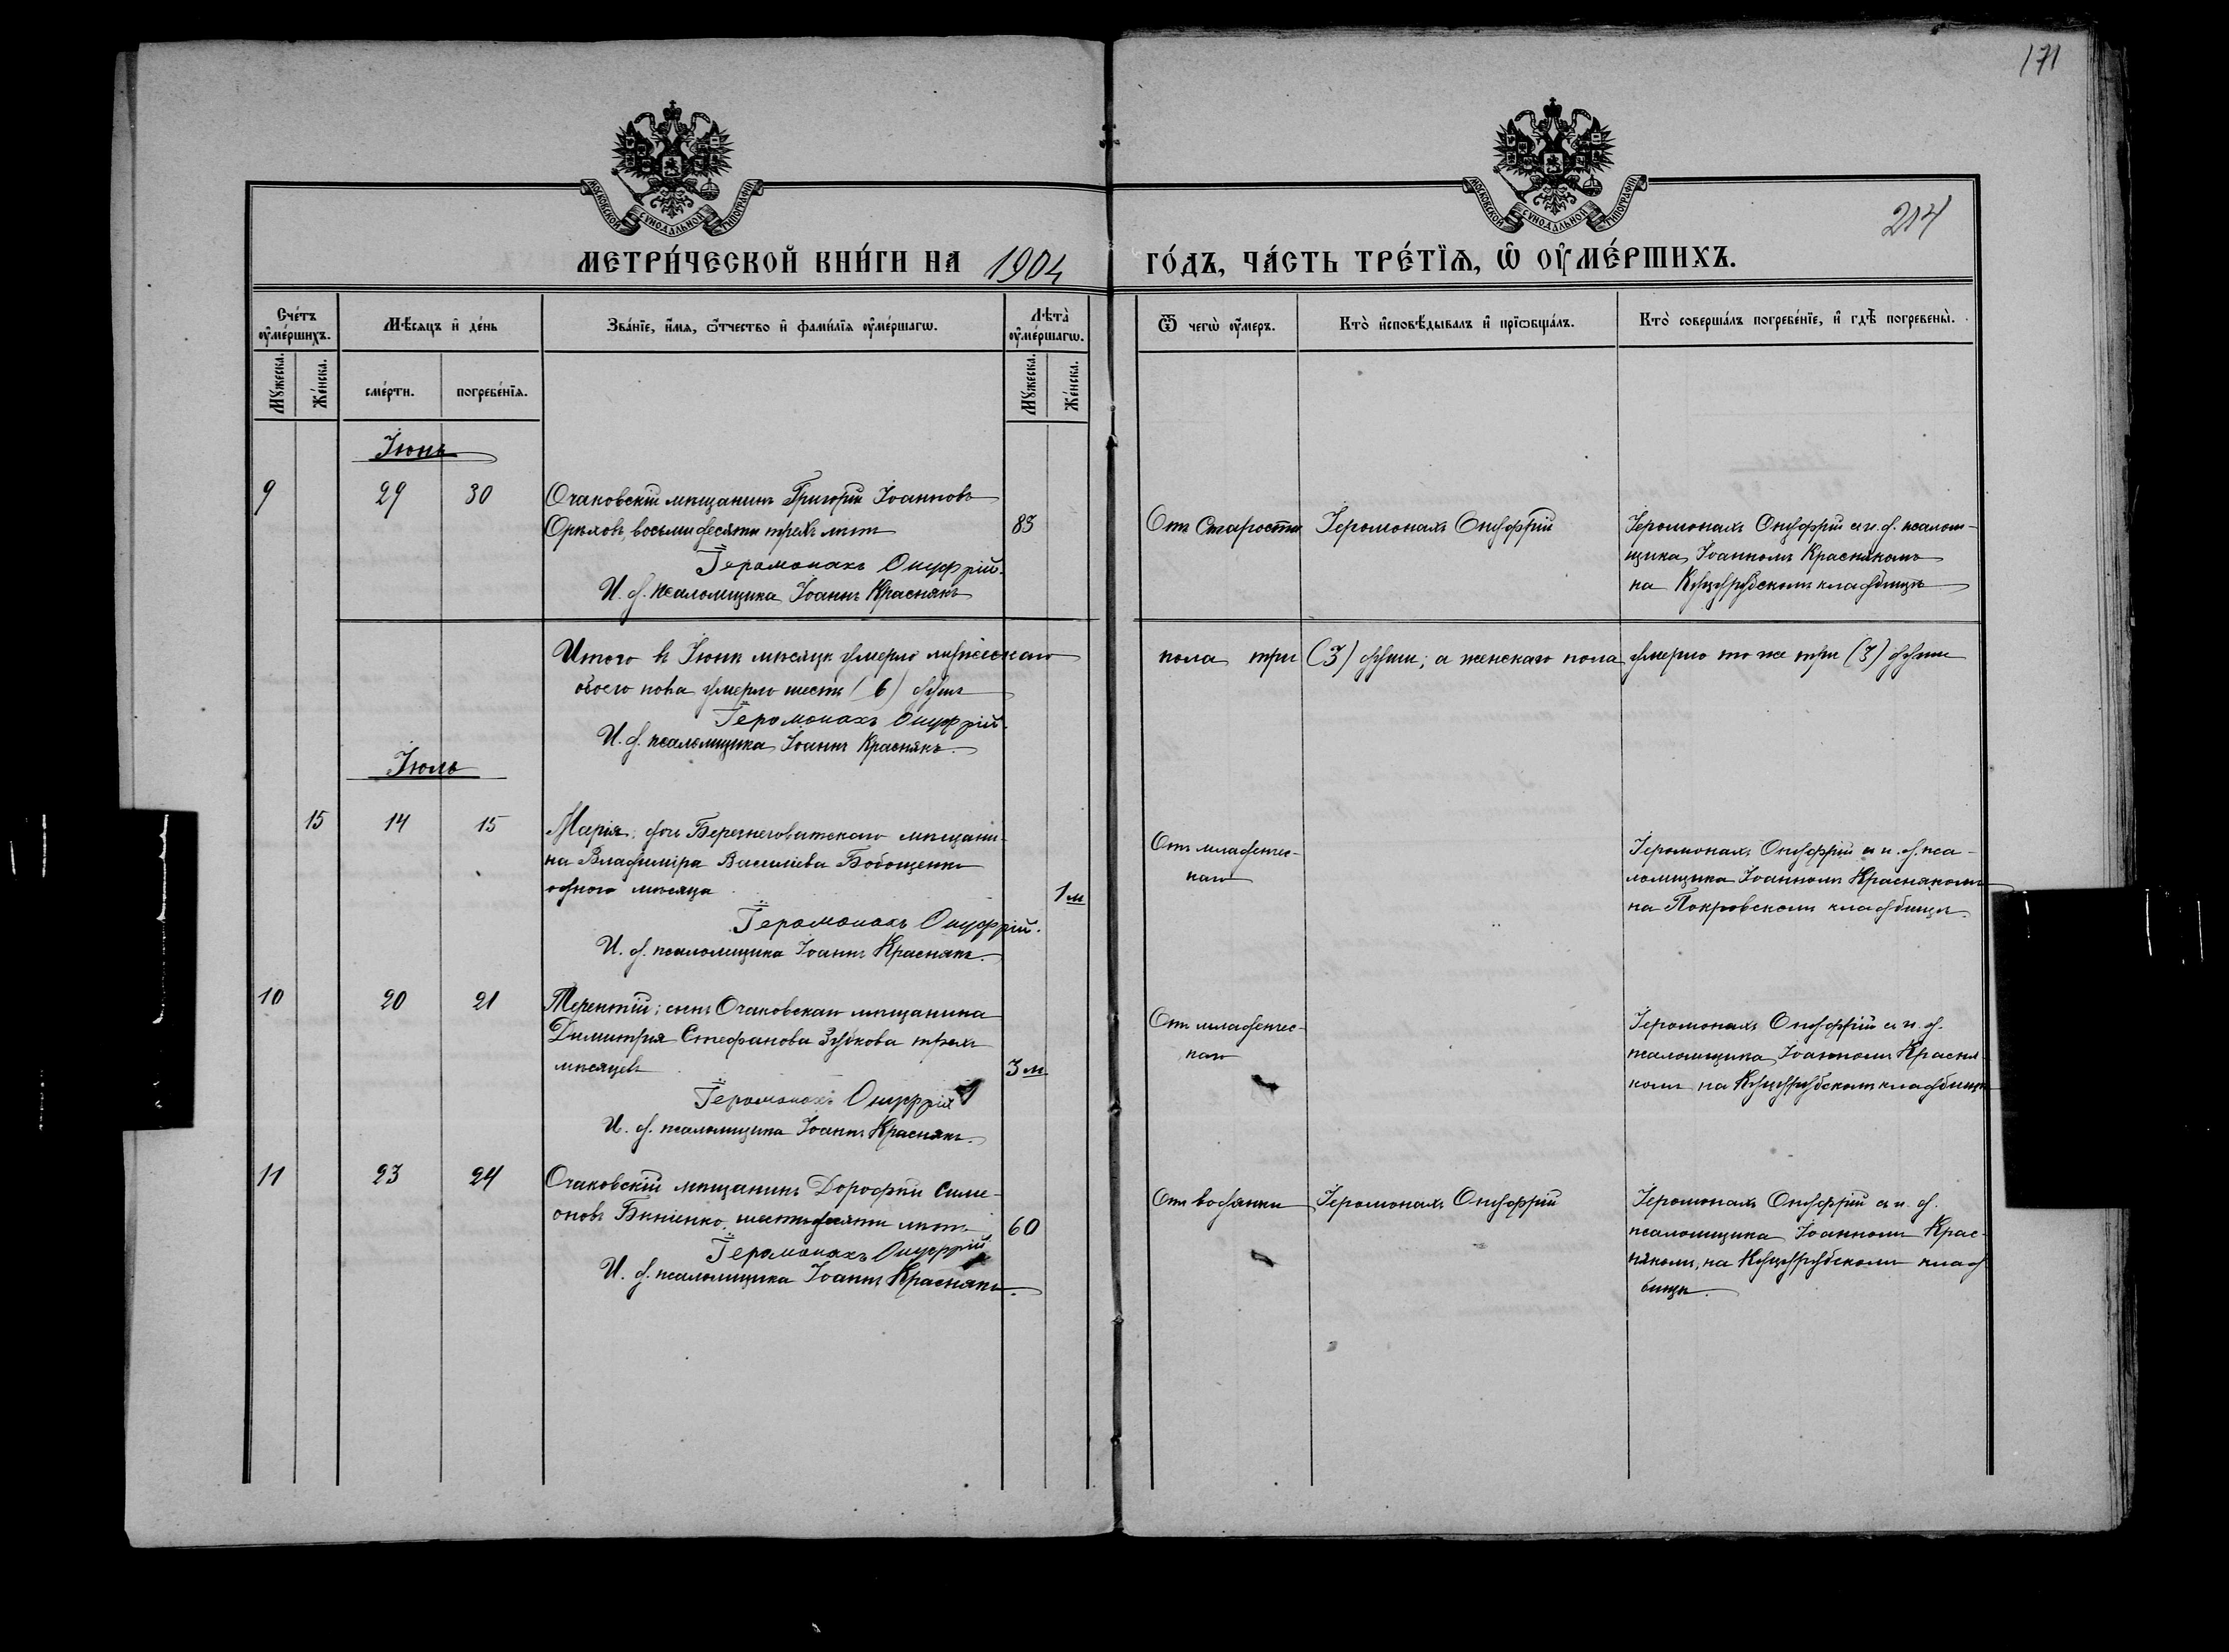 171
214
МОСКОВСКОЙ СѴНОДАЛЬНОЙ ТИПОГРАФІИ
МОСКОВСКОЙ СѴНОДАЛЬНОЙ ТИПОГРАФІИ
МЕТРИ́ЧЕСКОЙ КНИ́ГИ НА 1904 ГО́ДЪ, ЧА́СТЬ ТРЕ́ТЇѦ, Ѡ҆ ОУ҆МЕ́РШИХЪ.
Сче́тъ оу҆ме́ршихъ.
Мꙋжеска.
Же́нска.
Мѣ́сяцъ и҆ де́нь
сме́рти.
погребе́нїѧ.
Зва́нїе, и҆́мѧ, ѻ҆́тчество и҆ фами́лїѧ оу҆ме́ршагѡ.
Лѣта̀ оу҆ме́ршагѡ.
Мꙋжеска.
Же́нска.
Ѿ чегѡ̀ оу҆́меръ.
Кто̀ и҆сповѣ́дывалъ и҆ прїѡбща́лъ.
Кто̀ соверша́лъ погребе́нїе, и҆ гдѣ̀ погребены̀.
Іюнь
9 29 30 Очаковскій мѣщанинъ Григорій Іоанновъ
Орѣховъ, восьмидесяти трехъ лѣтъ 83
Іеромонахъ Онуфрій.
И. д. псаломщика Іоаннъ Краснякъ
Отъ Старости
Іеромонахъ Онуфрій
Іеромонахъ Онуфрій съ и. д. псалом-
щика Іоанномъ Краснякомъ
на Куцурубскомъ кладбищѣ
Итого въ Іюнѣ мѣсяцѣ умерло мужескаго пола три (3) души; а женскаго пола умерло то же три (3) души
обоего пола умерло шесть (6) душъ
Іеромонахъ Онуфрій.
И. д. псаломщика Іоаннъ Краснякъ.
Іюль
15 14 15 Марія, дочь Березнеговатскаго мѣщани-
на Владиміра Василіева
одного мѣсяца 1 м
Іеромонахъ Онуфрій.
И. д. псаломщика Іоаннъ Краснякъ.
Отъ младенчес-
каго
Іеромонахъ Онуфрій съ и. д. пса-
ломщика Іоанномъ Краснякомъ
на Покровскомъ кладбищѣ.
10 20 21 Терентій; сынъ Очаковскаго мѣщанина
Димитрія Стефанова Зубкова трехъ
мѣсяцевъ 3 м
Іеромонахъ Онуфрій
И. д. псаломщика Іоаннъ Краснякъ.
Отъ младенчес-
каго
Іеромонахъ Онуфрій съ и. д.
псаломщика Іоанномъ Красня-
комъ на Куцурубскомъ кладбищѣ
11 23 24 Очаковскій мѣщанинъ Дорофѣй Симе-
оновъ шестидесяти лѣтъ 60
Іеромонахъ Онуфрій
И. д. псаломщика Іоаннъ Краснякъ.
Отъ водянки
Іеромонахъ Онуфрій
Іеромонахъ Онуфрій съ и. д.
псаломщика Іоанномъ Крас-
някомъ, на Куцурубскомъ клад
бищѣ.